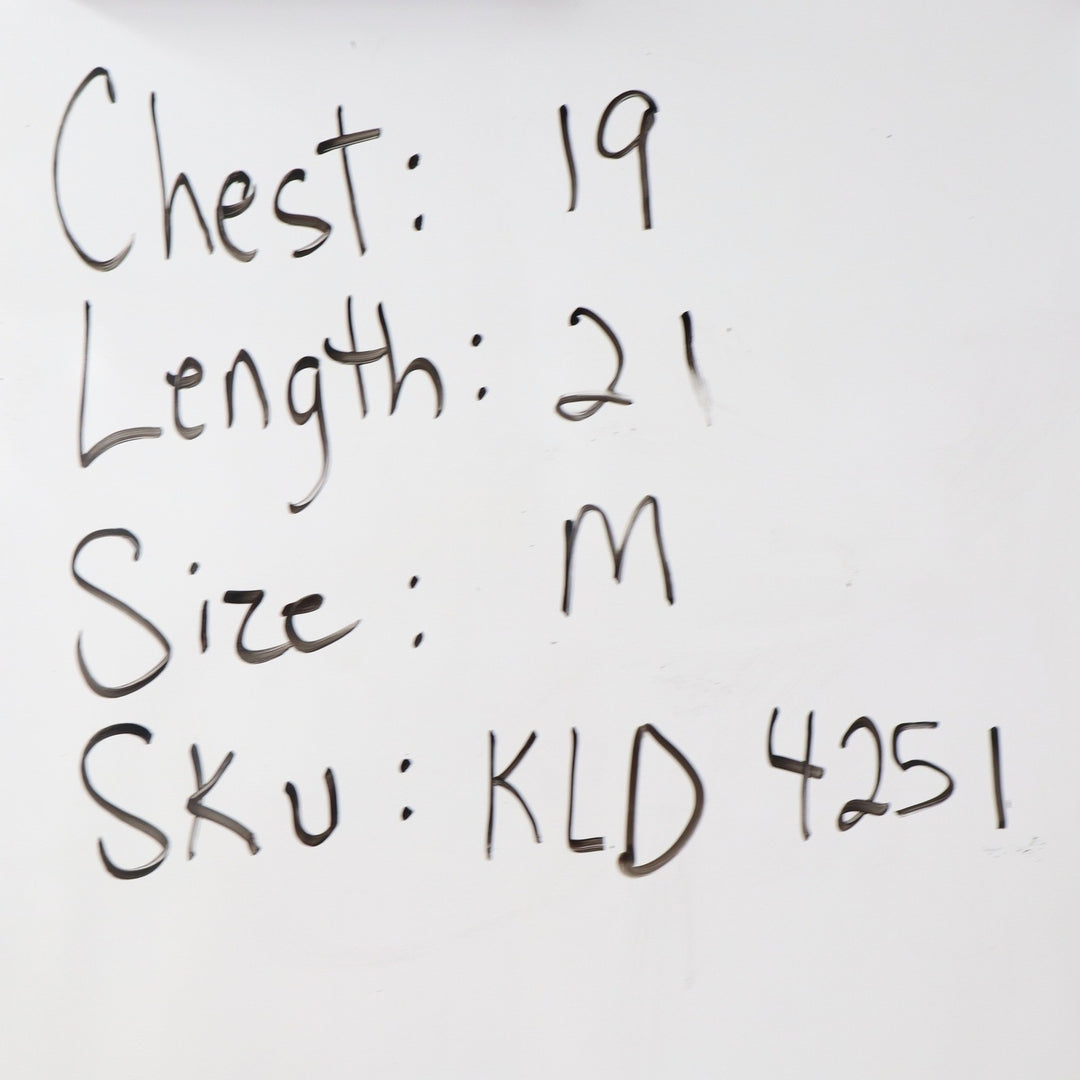 Chest: 19
Length: 21
Size: M
SKU: KLD 4251